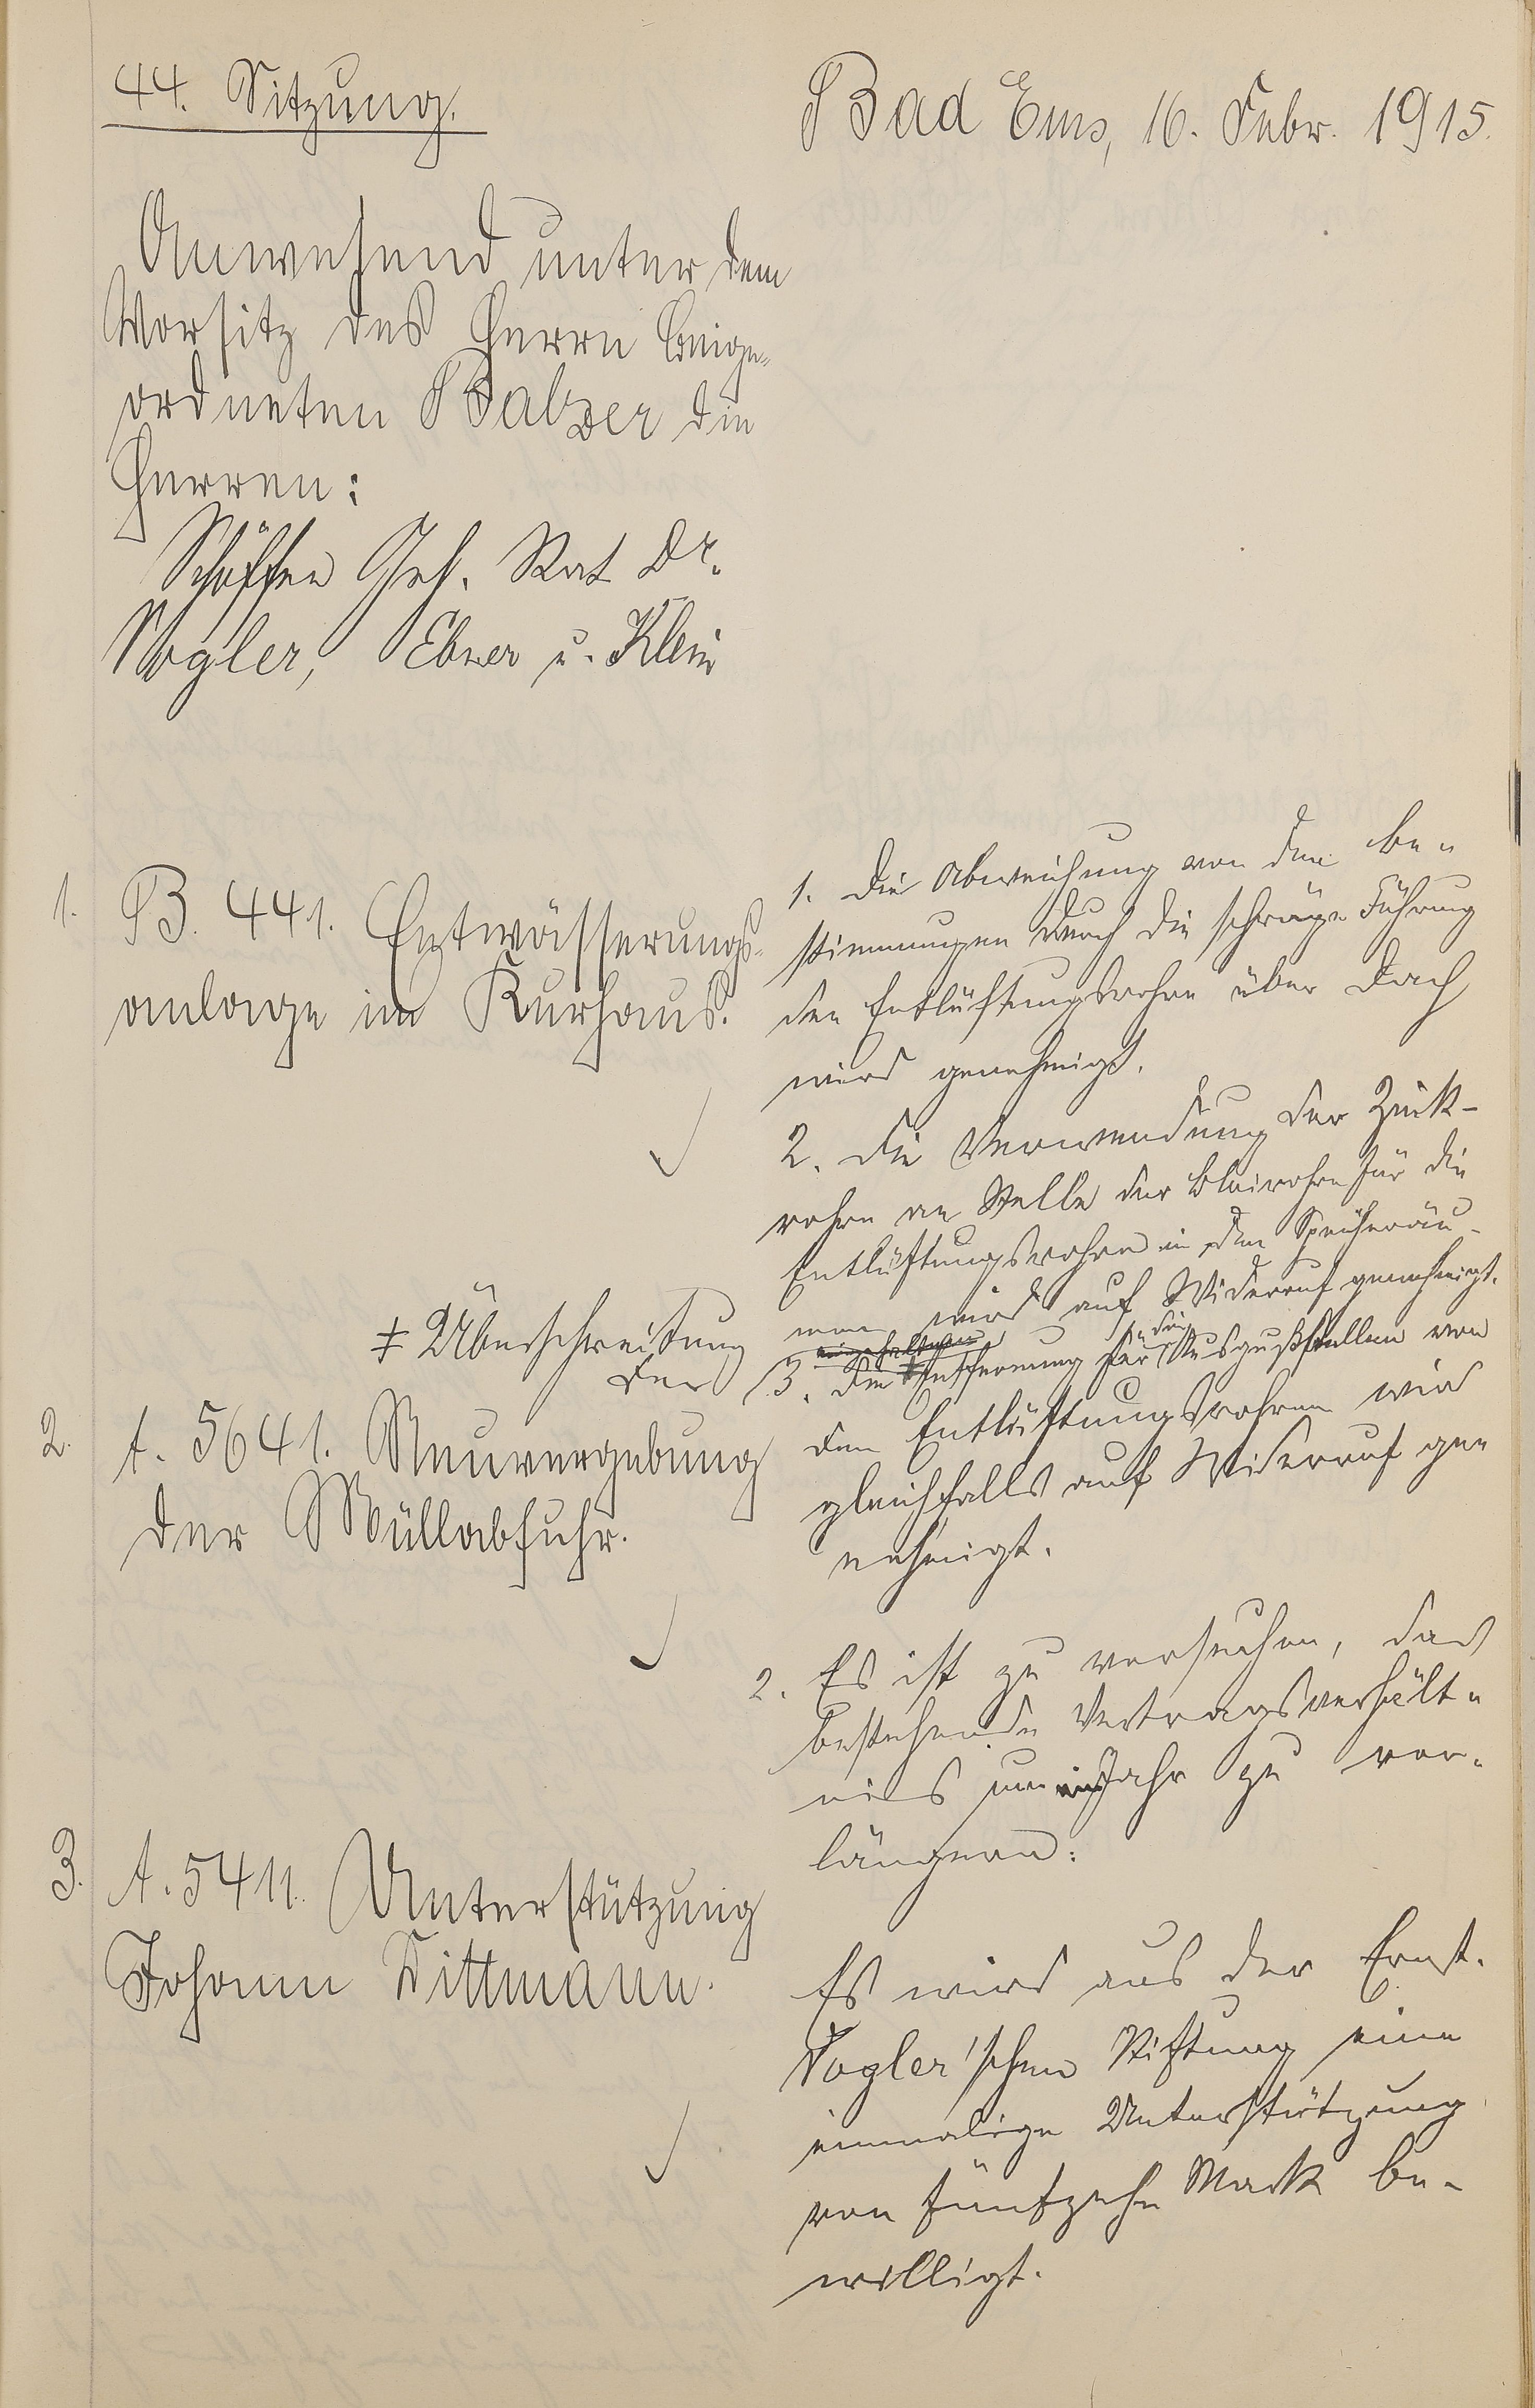 44. Sitzung.
Bad Ems, 16. Febr. 1915.
Anwesend unter dem
Vorsitz des Herrn Beige-
ordneten Balzer die
Herren:
Schöffen Geh. Rat Dr.
Vogler, Ebner u. Klein
1. B. 441. Entwässerungs-
anlage im Kurhaus.
1. Die Abweichung von den Be-
stimmungen durch die schräge Führung
der Entlüftungsrohre über Dach
wird genehmigt.
2. Die Verwendung der Zink-
rohre an Stelle der Bleirohre für die
Entlüftungsrohre in den Spülräu-
men wird auf Widerruf genehmigt.
‡ Überschreitung
der
3. Die ‡ Entfernung für die Ausgußstellen von
den Entlüftungsrohren wird
gleichfalls auf Widerruf ge-
nehmigt.
2. A. 5641. Neuvergebung
der Müllabfuhr.
2. Es ist zu versuchen, das
bestehende Vertragsverhält-
nis um ein Jahr zu ver-
längern.
3. A. 5411. Unterstützung
Johann Dittmann.
Es wird aus der Ernst-
Vogler'schen Stiftung eine
einmalige Unterstützung
von fünfzehn Mark be-
willigt.